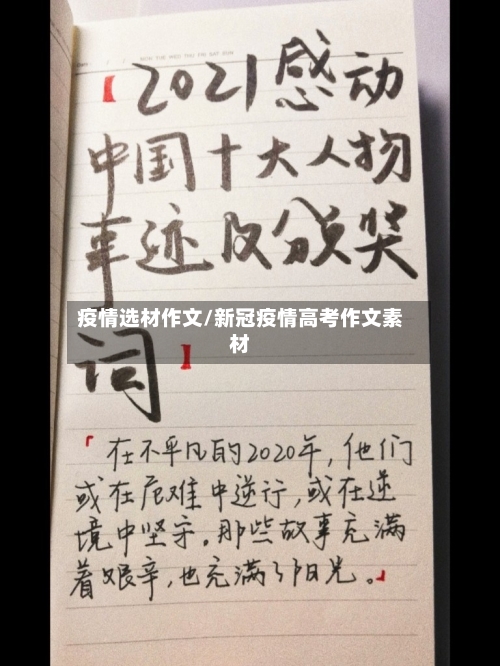 MON TUE WED THU FRI SAT SUN
【2021感动
中国十大人物
事迹及颁奖
疫情选材作文/新冠疫情高考作文素
材
词】
「在不平凡的2020年,他们
或在危难中逆行,或在逆
境中坚守。那些故事充满
着艰辛,也充满了阳光。」